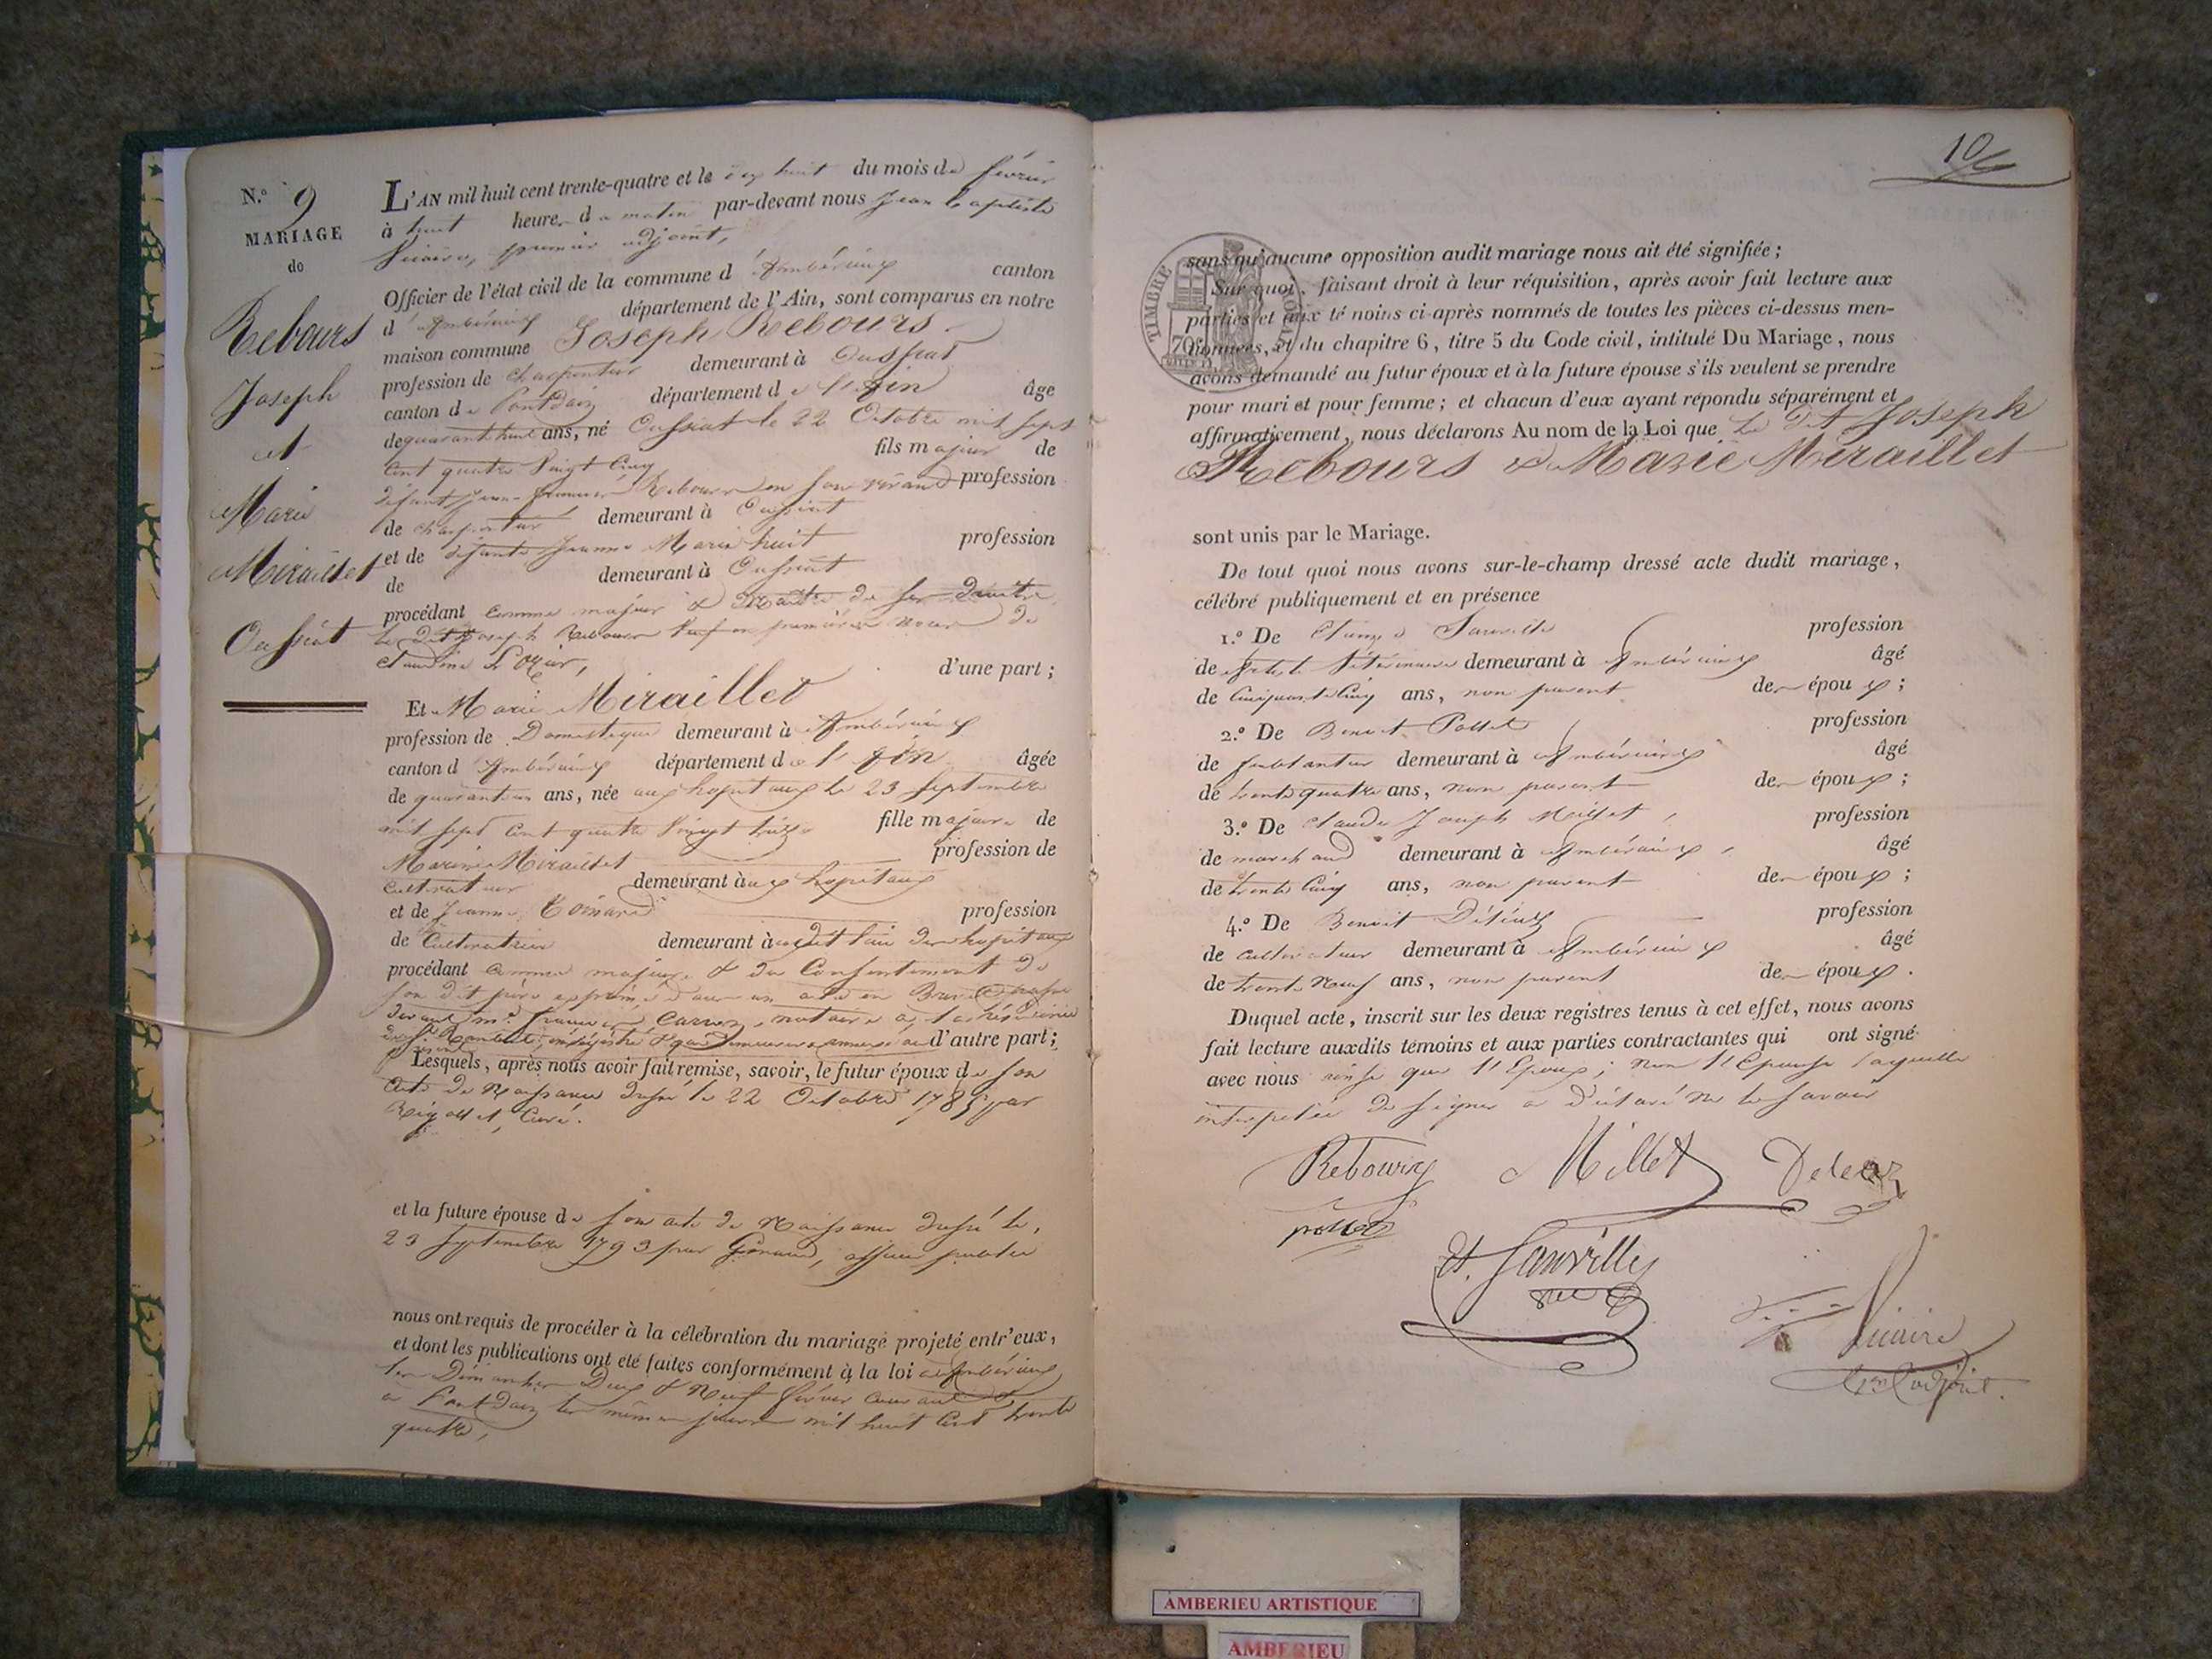 N.o 9
MARIAGE
de
Rebours
Joseph
et
Marie
Miraillet
Oussiat
L'AN mil huit cent trente-quatre et le dix huit du mois de février
à huit heures du matin par-devant nous Jean baptiste
Vicaire, premier adjoint,
Officier de l'état civil de la commune d'Ambérieux canton
d'Ambérieux département de l'Ain, sont comparus en notre
maison commune Joseph Rebours
profession de charpentier demeurant à Oussiat
canton de Pontdain département de l'Ain âgé
de quarante huit ans, né Oussiat le 22 Octobre mil sept
cent quatre vingt cinq fils majeur de
défunt Jean-françois Rebours en son vivant profession
de charpentier demeurant à Oussiat
et de défunte Jeanne Marie huit profession
de demeurant à Oussiat
procédant comme majeur & maître de ses droits
le dit Joseph Rebours veuf en premières noces de
claudine
d'une part ;
Et Marie Miraillet
profession de Domestique demeurant à Ambérieux
canton d'Ambérieux département de l'Ain âgée
de quarante ans, née aux hopitaux le 23 septembre
mil sept cent quatre vingt treize fille majeure de
Miraillet profession de
cultivateur demeurant aux hopitaux
et de Jeanne profession
de Cultivatrice demeurant audit lieu des hopitaux
procédant comme majeure & du Consentement de
son dit père exprimé dans un acte en Brevet passé
devant me françois Carrier, notaire à la résidence
d'autre part ;
Lesquels, après nous avoir fait remise, savoir, le futur époux de son
acte de Naissance dressé le 22 Octobre 1785 par
Curé.
et la future épouse de son acte de Naissance dressé le
23 septembre 1793 par officier public
nous ont requis de procéder à la célébration du mariage projeté entr'eux,
et dont les publications ont été faites conformément à la loi à Ambérieux
les Dimanches Deux & Neuf février courant &
à Pontdain les mêmes jours mil huit Cent trente
quatre,
10
TIMBRE ROYAL
70c
sans qu'aucune opposition audit mariage nous ait été signifiée ;
Sur quoi, faisant droit à leur réquisition, après avoir fait lecture aux
parties et aux témoins ci-après nommés de toutes les pièces ci-dessus men-
tionnées, et du chapitre 6, titre 5 du Code civil, intitulé Du Mariage, nous
avons demandé au futur époux et à la future épouse s'ils veulent se prendre
pour mari et pour femme ; et chacun d'eux ayant répondu séparément et
affirmativement, nous déclarons Au nom de la Loi que Le Dit Joseph
Rebours & Marie Miraillet
sont unis par le Mariage.
De tout quoi nous avons sur-le-champ dressé acte dudit mariage,
célébré publiquement et en présence
1.o De Etienne Sauville profession
de artiste vétérinaire demeurant à Ambérieux âgé
de Cinquante Cinq ans, non parent des époux ;
2.o De Benoit Pollet profession
de demeurant à Ambérieux âgé
de trente quatre ans, non parent des époux ;
3.o De Claude Joseph Millet, profession
de marchand demeurant à Ambérieux, âgé
de trente Cinq ans, non parent des époux ;
4.o De Benoit profession
de cultivateur demeurant à Ambérieux âgé
de trente Neuf ans, non parent des époux.
Duquel acte, inscrit sur les deux registres tenus à cet effet, nous avons
fait lecture auxdits témoins et aux parties contractantes qui ont signé
avec nous ainsi que l'Epoux ; non l'Epouse laquelle
interpellée de signer a déclaré ne le savoir
Rebours Millet
pollet
Et. Sauville
Vicaire
1er adjoint.
AMBERIEU ARTISTIQUE
AMBERIEU